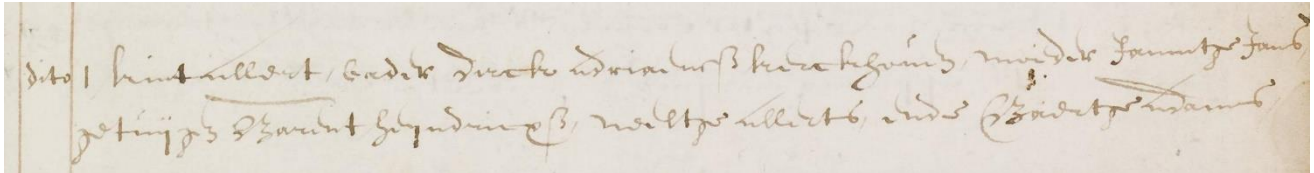 dito 1 kint allert, vader dirck adriaensß kerckhoven, moeder Jannitge Jans,
getuijgen Barent heijndricxß, neeltge allerts, ende Maertge adams,